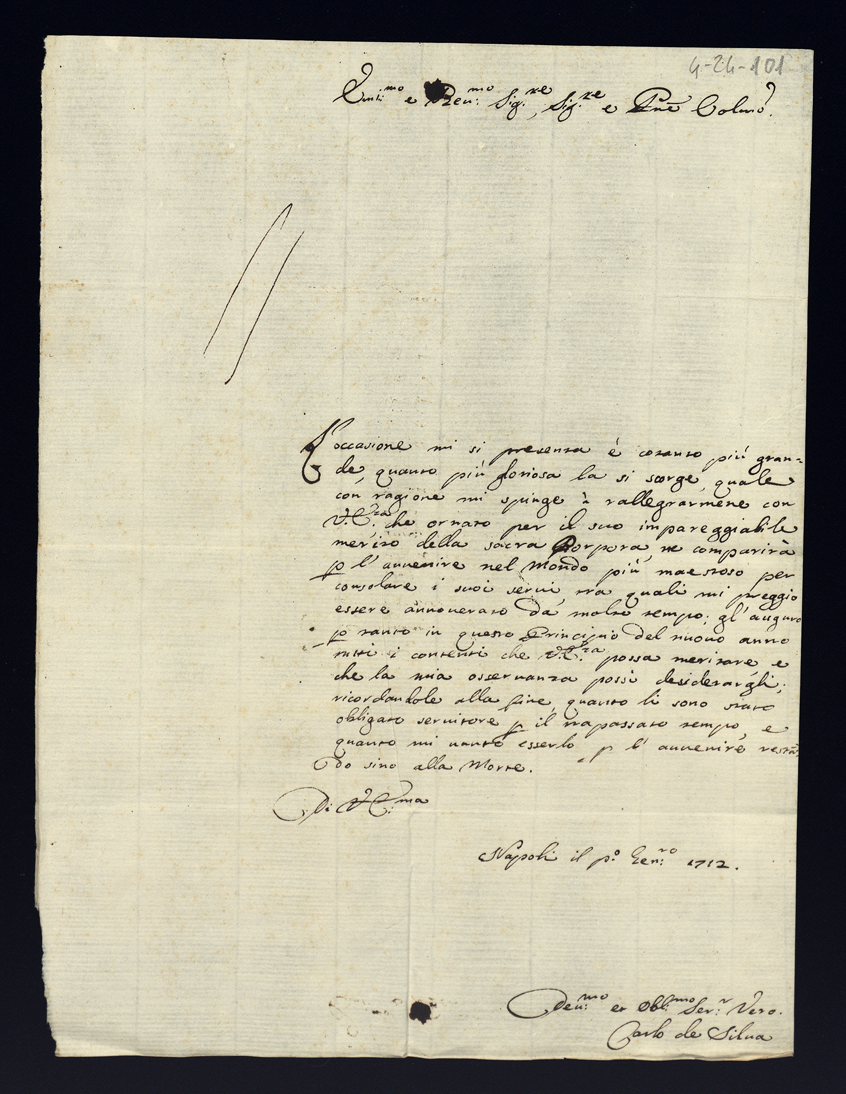 4-24-101
Emin.mo e Reu.mo Sig.re, Sig.re e Prñe Colmo.
L'occasione mi si presenta è cotanto più gran=
de, quanto più gloriosa la si scorge, quale
con ragione mi spinge à rallegrarmene con
V.E.za che ornato per il suo impareggiabile
merito della sacra Porpora, ne comparirà
p l'auuenire nel Mondo più maestoso per
consolare i suoi serui, tra quali mi preggio
essere annouerato da molto tempo; gl'auguro
p tanto in questo Principio del nuouo anno
tutti i contenti che V.E.za possa meritare e
che la mia osseruanza possi desiderargli;
ricordandole alla fine, quanto li sono stato
obligato seruitore p il trapassato tempo, e
quanto mi uanto esserlo p l'auuenire restan
do sino alla Morte.
Di V.E.ma
Napoli il p.o Gen.ro 1712.
Deu.mo et Obl.mo Ser.r Vero.
Carlo de Silua